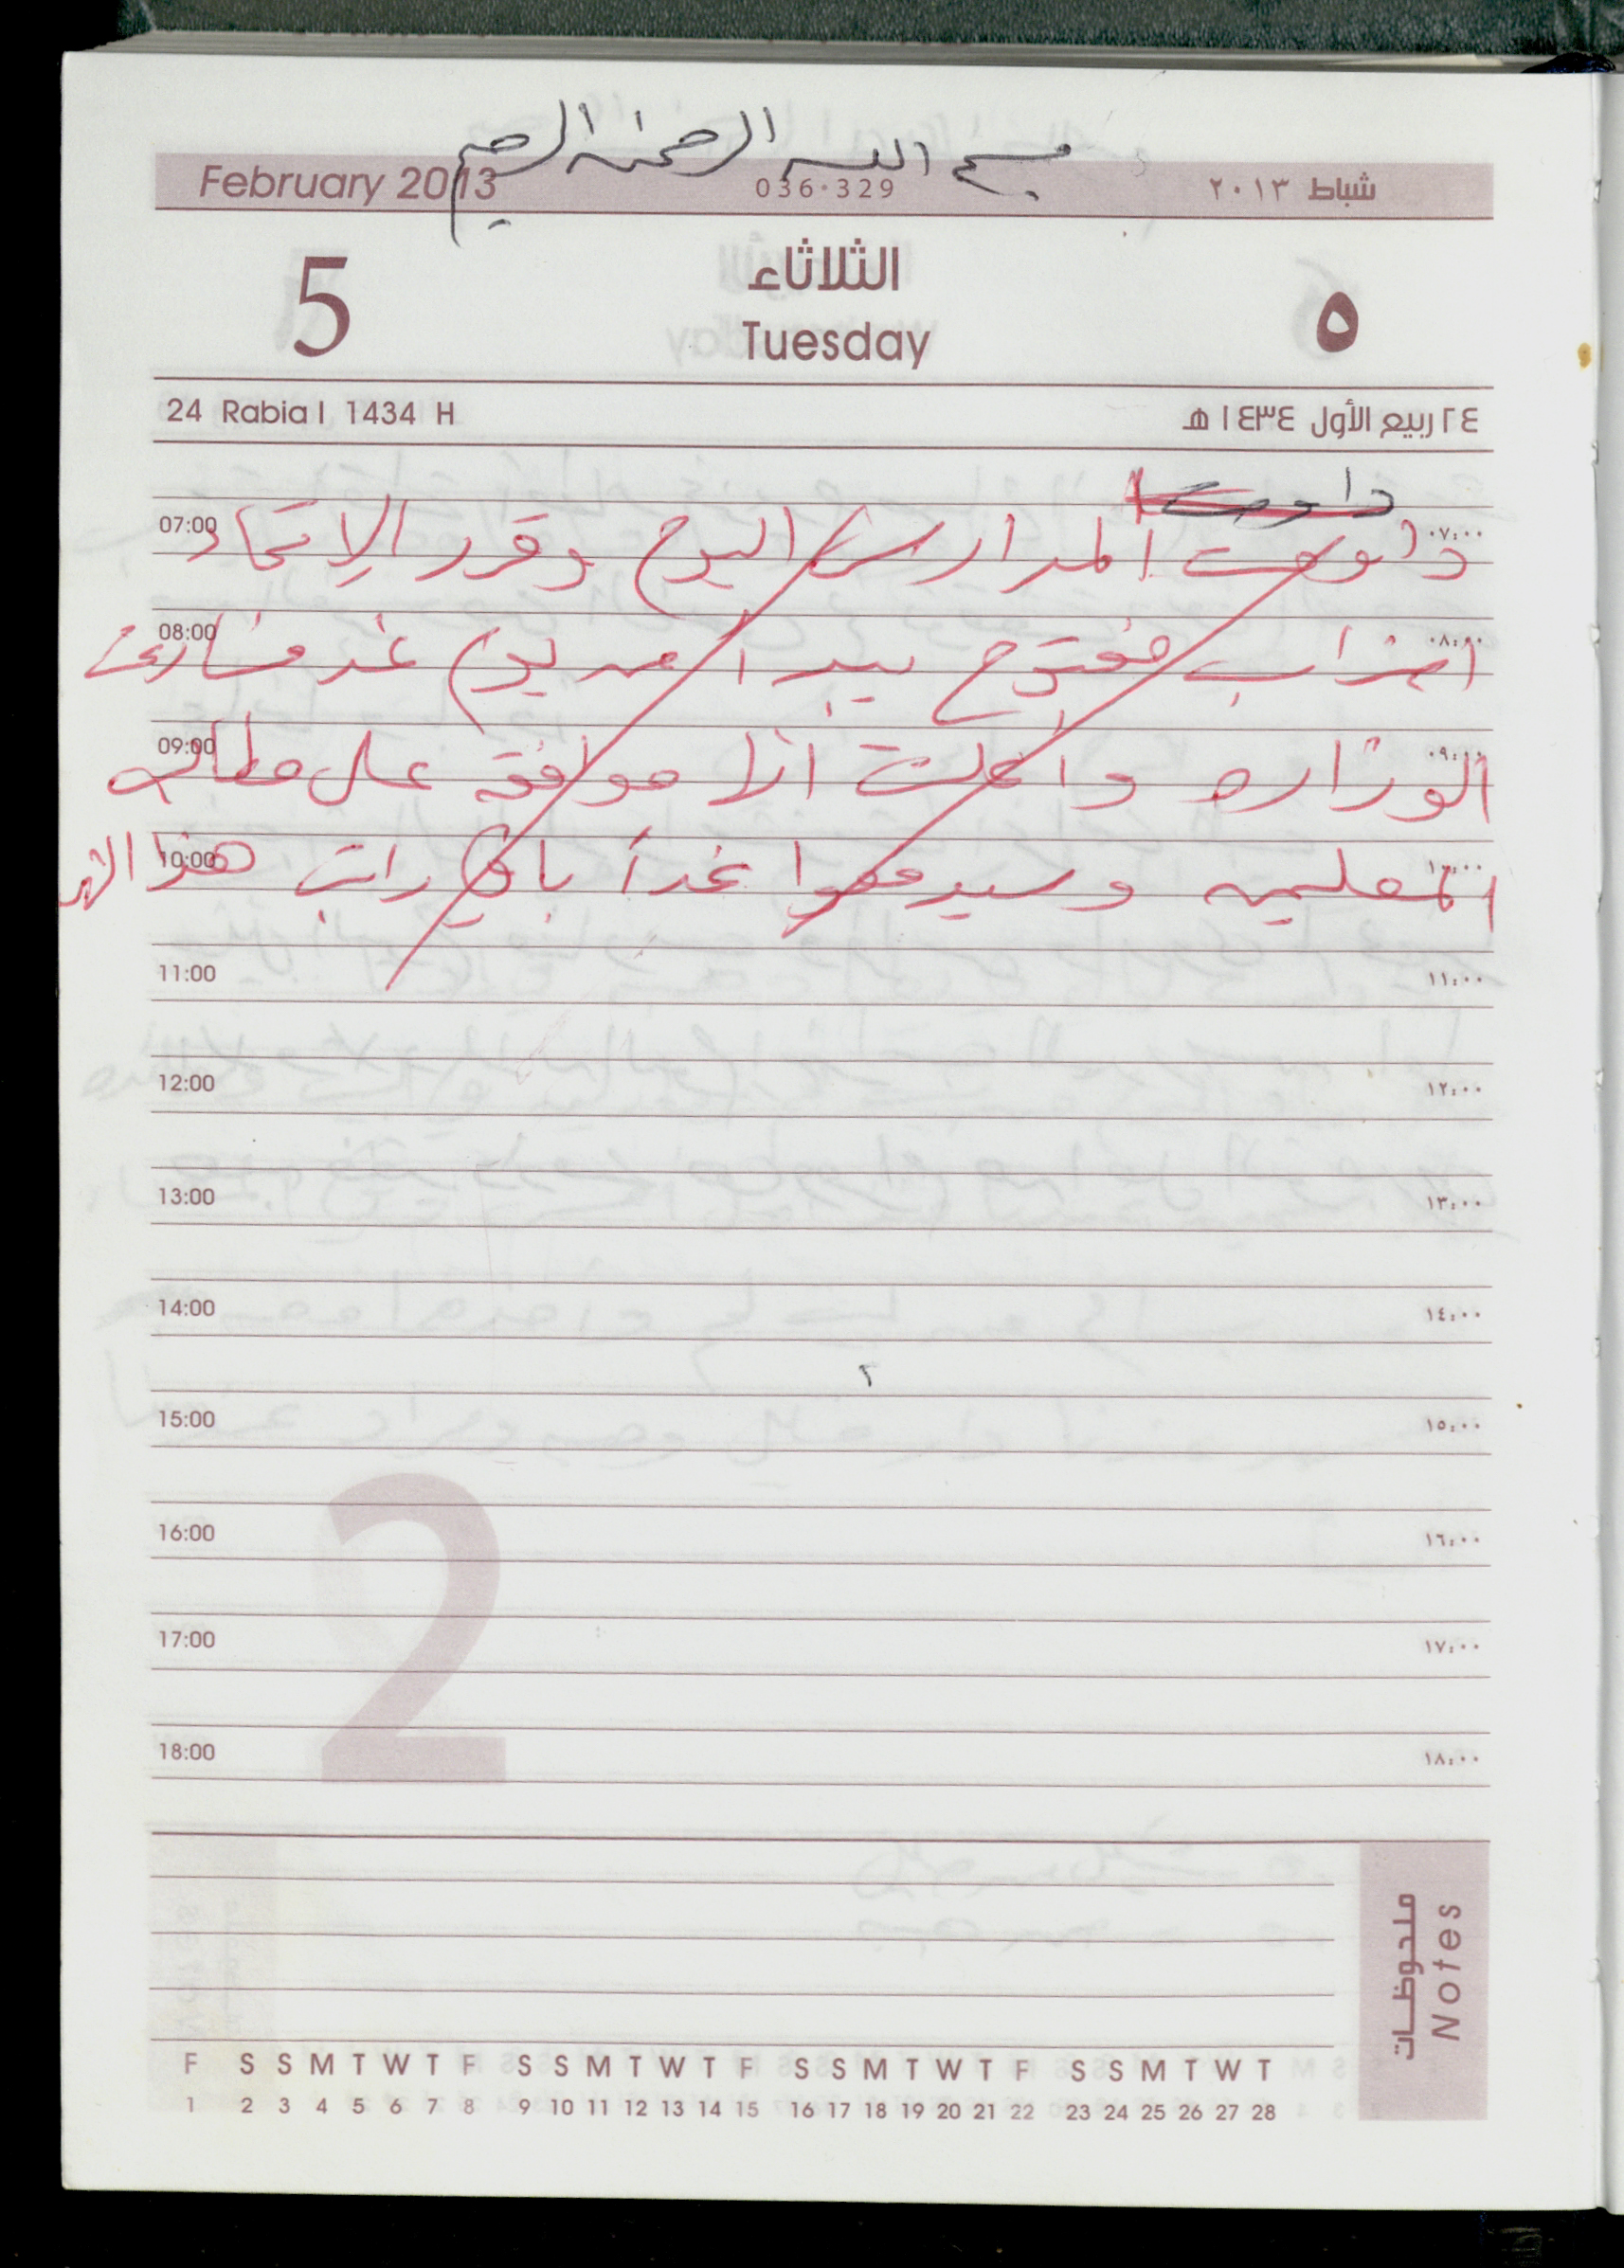 بسم الله الرحمن الرحيم
February 2013 036·329 شباط ٢٠١٣
5 الثلاثاء ٥
Tuesday
24 Rabia I 1434 H ٢٤ ربيع الأول ١٤٣٤ هـ
داومت
07:00 داومت المدارس اليوم وقرر الإتحاد ٠٧:٠٠
08:00 اضراب مفتوح يبدأ من يوم غد فسارعت ٠٨:٠٠
09:00 الوزاره واعلنت انلا موافقة على مطالب ٠٩:٠٠
10:00 المعلمين وسيدفعوا غداً باقي راتب هذا الشهر ١٠:٠٠
11:00 ١١:٠٠
12:00 ١٢:٠٠
13:00 ١٣:٠٠
14:00 ١٤:٠٠
٢
15:00 ١٥:٠٠
16:00 ١٦:٠٠
17:00 ١٧:٠٠
18:00 ١٨:٠٠
2
ملحوظات
Notes
F S S M T W T F S S M T W T F S S M T W T F S S M T W T
1 2 3 4 5 6 7 8 9 10 11 12 13 14 15 16 17 18 19 20 21 22 23 24 25 26 27 28